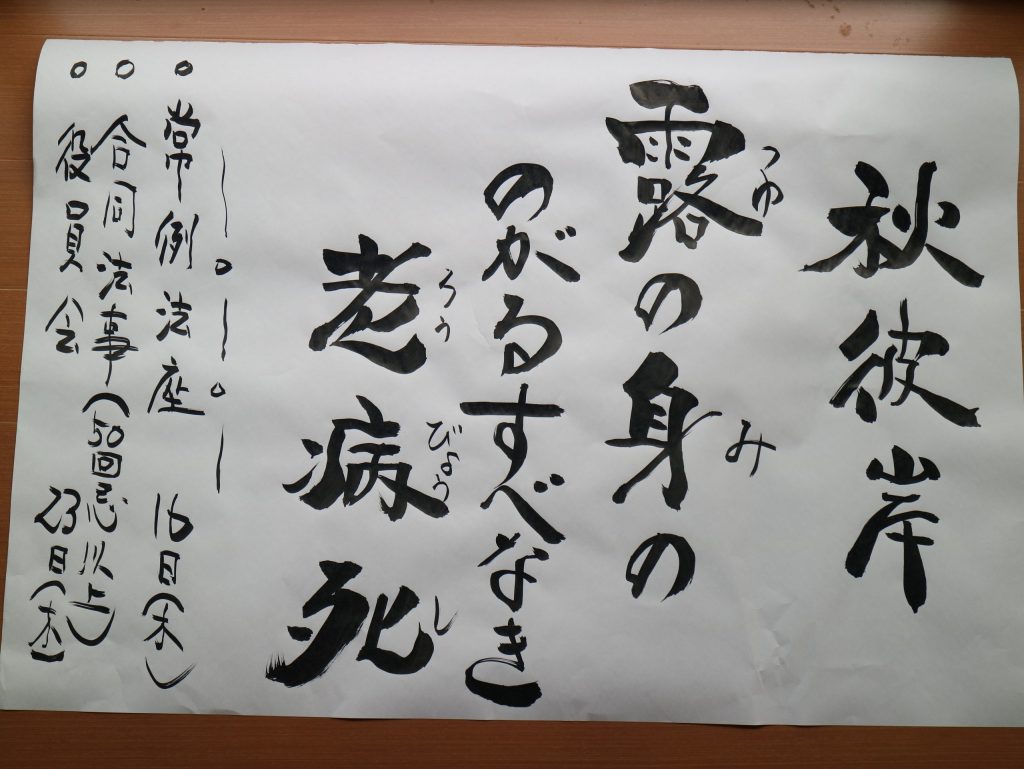 秋彼岸
露の身の
つゆ
み
のがるすべなき
老病死
ろう
びょう
し
○常例法座 16日(木)
○合同法事(50回忌以上)
○役員会 23日(木)